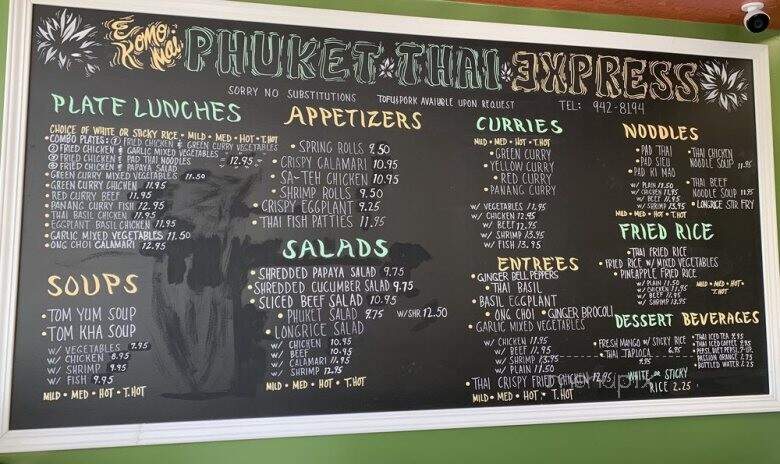 E Komo Mai
PHUKET THAI EXPRESS
SORRY NO SUBSTITUTIONS TOFU/PORK AVAILABLE UPON REQUEST TEL: 942-8194
PLATE LUNCHES
CHOICE OF WHITE OR STICKY RICE • MILD • MED • HOT • T.HOT
• COMBO PLATES: ① FRIED CHICKEN & GREEN CURRY VEGETABLES
② FRIED CHICKEN & GARLIC MIXED VEGETABLES
③ FRIED CHICKEN & PAD THAI NOODLES 12.95
④ FRIED CHICKEN & PAPAYA SALAD
GREEN CURRY MIXED VEGETABLES 11.50
GREEN CURRY CHICKEN 11.95
RED CURRY BEEF 11.95
PANANG CURRY FISH 12.95
THAI BASIL CHICKEN 11.95
EGGPLANT BASIL CHICKEN 11.95
GARLIC MIXED VEGETABLES 11.50
ONG CHOI CALAMARI 12.95
SOUPS
• TOM YUM SOUP
• TOM KHA SOUP
W/ VEGETABLES 7.95
W/ CHICKEN 8.95
W/ SHRIMP 9.95
W/ FISH 9.95
MILD • MED • HOT • T.HOT
APPETIZERS
• SPRING ROLLS 9.50
• CRISPY CALAMARI 10.95
• SA-TEH CHICKEN 10.95
• SHRIMP ROLLS 9.50
• CRISPY EGGPLANT 9.25
• THAI FISH PATTIES 11.95
SALADS
• SHREDDED PAPAYA SALAD 9.75
• SHREDDED CUCUMBER SALAD 9.75
• SLICED BEEF SALAD 10.95
• PHUKET SALAD 9.75 W/SHR 12.50
• LONGRICE SALAD
W/ CHICKEN 10.95
W/ BEEF 10.95
W/ CALAMARI 12.95
W/ SHRIMP 12.95
MILD • MED • HOT • T.HOT
CURRIES
MILD • MED • HOT • T.HOT
• GREEN CURRY
• YELLOW CURRY
• RED CURRY
• PANANG CURRY
W/ VEGETABLES 11.95
W/ CHICKEN 12.95
W/ BEEF 12.95
W/ SHRIMP 13.95
W/ FISH 13.95
ENTREES
• GINGER BELL PEPPERS
• THAI BASIL
• BASIL EGGPLANT
• ONG CHOI • GINGER BROCOLI
• GARLIC MIXED VEGETABLES
W/ CHICKEN 11.95
W/ BEEF 11.95
W/ SHRIMP 13.95
W/ PLAIN 11.50
• THAI CRISPY FRIED CHICKEN 12.95
MILD • MED • HOT • T.HOT
NOODLES
• PAD THAI
• PAD SIEU
• PAD KI MAO
W/ PLAIN 11.50
W/ CHICKEN 11.95
W/ BEEF 11.95
W/ SHRIMP 13.95
MILD • MED • HOT • T.HOT
• THAI CHICKEN
NOODLE SOUP 11.95
• THAI BEEF
NOODLE SOUP 11.95
• LONGRICE STIR FRY
FRIED RICE
• THAI FRIED RICE
• FRIED RICE W/ MIXED VEGETABLES
• PINEAPPLE FRIED RICE
W/ PLAIN 11.50
W/ CHICKEN 11.95
W/ BEEF 11.95
W/ SHRIMP 13.95
MILD • MED • HOT •
• T.HOT
DESSERT
FRESH MANGO W/ STICKY RICE
THAI TAPIOCA 6.95
BEVERAGES
• THAI ICED TEA
• THAI ICED COFFEE
• PEPSI, DIET PEPSI, 7-UP
• PASSION ORANGE
• BOTTLED WATER
WHITE OR STICKY
RICE 2.25
menupix